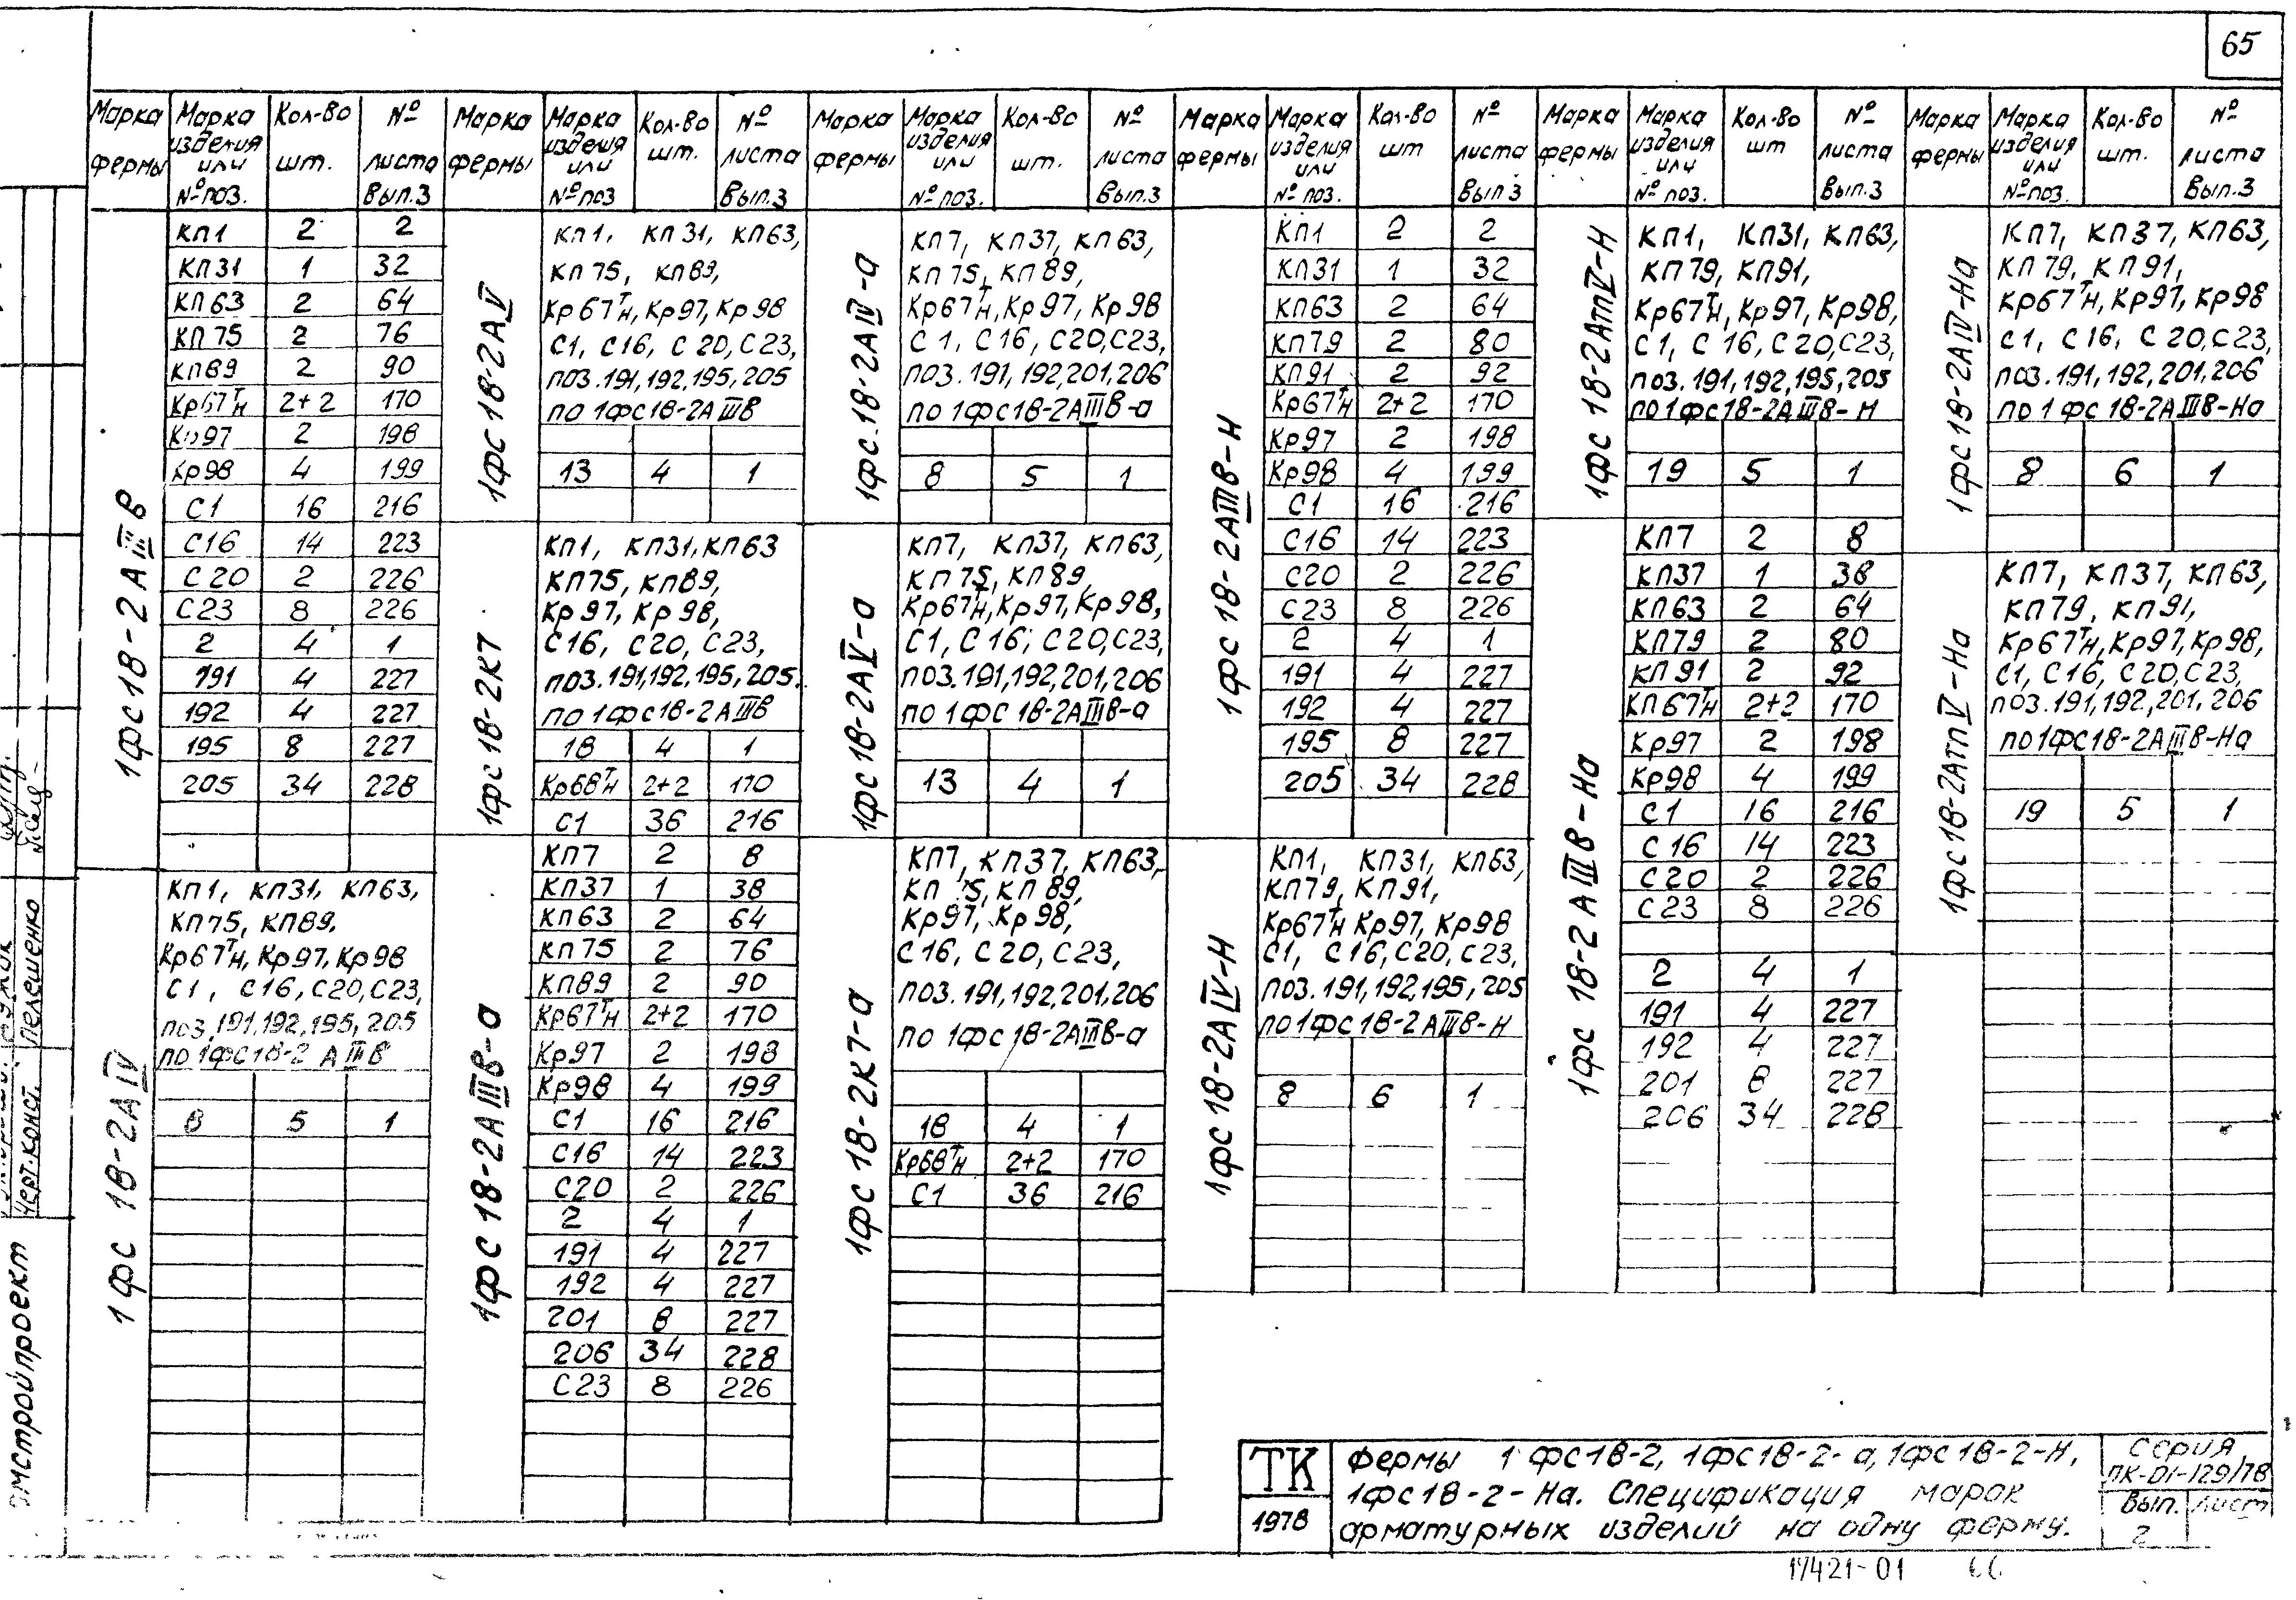 65
Марка фермы | Марка изделия или № поз. | Кол-во шт. | № листа Вып.3
1фс18-2АIIIВ
КП1 2 2
КП31 1 32
КП63 2 64
КП75 2 76
КП89 2 90
Кр67тн 2+2 170
Кр97 2 198
Кр98 4 199
С1 16 216
С16 14 223
С20 2 226
С23 8 226
2 4 1
191 4 227
192 4 227
195 8 227
205 34 228
1фс 18-2АIV
КП1, КП31, КП63,
КП75, КП89,
Кр67тн, Кр97, Кр98
С1, С16, С20, С23,
поз.191,192,195,205
по 1фс18-2 АIIIВ
8 5 1
Марка фермы | Марка изделия или № поз | Кол-во шт. | № листа Вып.3
1фс 18-2АV
КП1, КП31, КП63,
КП75, КП89,
Кр67тн, Кр97, Кр98
С1, С16, С20, С23,
поз.191,192,195,205
по 1фс18-2АIIIВ
13 4 1
1фс 18-2К7
КП1, КП31, КП63
КП75, КП89,
Кр97, Кр98,
С16, С20, С23,
поз.191,192,195,205.
по 1фс18-2АIIIВ
18 4 1
Кр68тн 2+2 170
С1 36 216
1фс 18-2АIIIВ-а
КП7 2 8
КП37 1 38
КП63 2 64
КП75 2 76
КП89 2 90
Кр67тн 2+2 170
Кр97 2 198
Кр98 4 199
С1 16 216
С16 14 223
С20 2 226
2 4 1
191 4 227
192 4 227
201 8 227
206 34 228
С23 8 226
Марка фермы | Марка изделия или № поз. | Кол-во шт. | № листа Вып.3
1фс.18-2АIV-а
КП7, КП37, КП63,
КП75, КП89,
Кр67тн, Кр97, Кр98
С1, С16, С20, С23,
поз.191,192,201,206
по 1фс18-2АIIIВ-а
8 5 1
1фс18-2АV-а
КП7, КП37, КП63,
КП75, КП89,
Кр67тн, Кр97, Кр98,
С1, С16, С20, С23,
поз.191,192,201,206
по 1фс 18-2АIIIВ-а
13 4 1
1фс 18-2К7-а
КП7, КП37, КП63,
КП 5, КП89,
Кр97, Кр98,
С16, С20, С23,
поз.191,192,201,206
по 1фс 18-2АIIIВ-а
18 4 1
Кр68тн 2+2 170
С1 36 216
Марка фермы | Марка изделия или № поз. | Кол-во шт | № листа Вып 3
1фс 18-2АIIIВ-Н
КП1 2 2
КП31 1 32
КП63 2 64
КП79 2 80
КП91 2 92
Кр67тн 2+2 170
Кр97 2 198
Кр98 4 199
С1 16 216
С16 14 223
С20 2 226
С23 8 226
2 4 1
191 4 227
192 4 227
195 8 227
205 34 228
1фс 18-2АIV-Н
КП1, КП31, КП63,
КП79, КП91,
Кр67тн Кр97, Кр98
С1, С16, С20, С23,
поз.191,192,195,205
по 1фс18-2АIIIВ-Н
8 6 1
Марка фермы | Марка изделия или № поз. | Кол-во шт | № листа Вып.3
1фс 18-2АтпV-Н
КП1, КП31, КП63,
КП79, КП91,
Кр67тн, Кр97, Кр98,
С1, С16, С20, С23,
поз.191,192,195,205
по 1фс18-2АIIIВ-Н
19 5 1
1фс 18-2АIIIВ-На
КП7 2 8
КП37 1 38
КП63 2 64
КП79 2 80
КП91 2 92
КП67тн 2+2 170
Кр97 2 198
Кр98 4 199
С1 16 216
С16 14 223
С20 2 226
С23 8 226
2 4 1
191 4 227
192 4 227
201 8 227
206 34 228
Марка фермы | Марка изделия или № поз. | Кол-во шт. | № листа Вып.3
1фс18-2АIV-На
КП7, КП37, КП63,
КП79, КП91,
Кр67тн, Кр97, Кр98
С1, С16, С20, С23,
поз.191,192,201,206
по 1фс 18-2АIIIВ-На
8 6 1
1фс18-2АтпV-На
КП7, КП37, КП63,
КП79, КП91,
Кр67тн, Кр97, Кр98,
С1, С16, С20, С23,
поз.191,192,201,206
по 1фс18-2АIIIВ-На
19 5 1
Черт.конст. Пелешенко
ТК
1978
Фермы 1фс18-2, 1фс18-2-а, 1фс18-2-Н,
1фс18-2-На. Спецификация марок
арматурных изделий на одну ферму.
Серия
ПК-01-129/78
Вып. Лист
2
17421-01 66